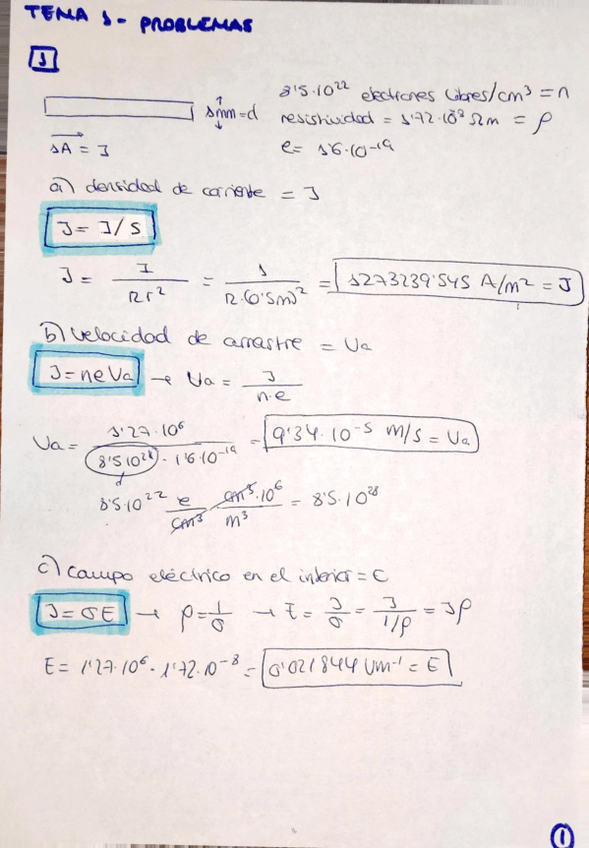 TEMA 1 - PROBLEMAS
1
8'5·10²² electrones libres/cm³ = n
1mm = d
resistividad = 1'72·10⁻⁸ Ωm = ρ
1A = I
e = 1'6·10⁻¹⁹
a) densidad de corriente = J
J = I/S
J = I / πr² = 1 / π·(0'5m)² = 1273239'545 A/m² = J
b) Velocidad de arrastre = Va
J = neVa → Va = J / n·e
Va = 1'27·10⁶ / 8'5·10²⁸ · 1'6·10⁻¹⁹ = 9'34·10⁻⁵ m/s = Va
8'5·10²² e/cm³ · cm³·10⁶/m³ = 8'5·10²⁸
c) Campo eléctrico en el interior = E
J = σE → ρ = 1/σ → E = J/σ = J / 1/ρ = Jρ
E = 1'27·10⁶ · 1'72·10⁻⁸ = 0'021844 Vm⁻¹ = E
1